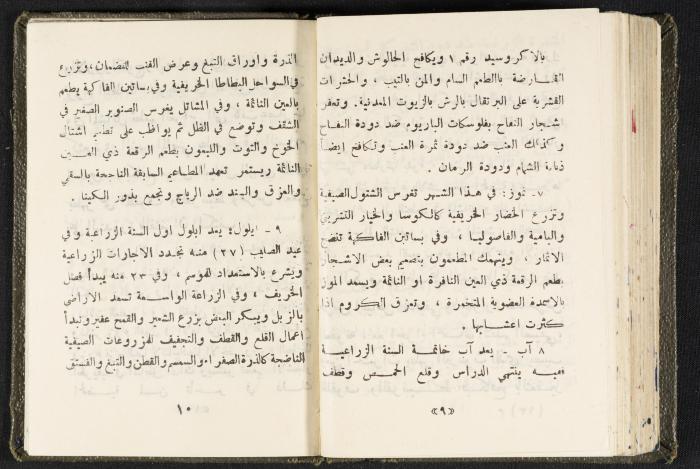 بالاكروسيد رقم ١ ويكافح الحالوش والديدان
القـــارضة بالطعم السام والمن بالتيب ، والحشرات
القشرية على البرتقال بالرش بالزيوت المعدنية. وتعفر
شجار التفاح بفلوسكات الباريوم ضد دودة التفاح
وكذلك العنب ضد دودة ثمرة العنب وتكافح ايضاً
ذبابة الشمام ودودة الرمان .
٧ـ تموز: في هذا الشهر تغرس الشتول الصيفية
وتزرع الخضار الخريفية كالكوسا والخيار التشريني
والبامية والفاصوليا ، وفي بساتين الفاكهة تنضج
الاثمار ، وينهمك المطعمون بتطعيم بعض الاشجار
بطعم الرقعة ذي العين النافرة او النائمة ويسمد الموز
بالاسمدة العضوية المتخمرة ، وتعزق الكروم اذا
كثرت اعشابها .
٨ آب ـ يعد آب خاتمـة السنة الزراعيـة
ففيـه ينتهي الدراس وقلع الحمـص وقطف
«٩»
الذرة واوراق التبغ وعرض القنب للتضمان، وتزرع
في السواحل البطاطا الخريفية وفي بساتين الفاكهة يطعم
بالعين النائمة ، وفي المشاتل يغرس الصنوبر الصغير في
الشقف وتوضع في الظل ثم يواظب على تطعيم اشتال
الخوخ والتوت والليمون بطعم الرقعة ذي العـين
النائمة ويستمر تعهد المطاعيم السابقة الناجحة بالسقي
والعزق والسند ضد الرياح وتجمع بذور الكينا .
٩ ـ ايلول: يعد ايلول اول السنة الزراعية وفي
عيد الصليب (٢٧) منه تجدد الاجارات الزراعية
ويشرع بالاستعداد للموسم ، وفي ٢٣ منه يبدأ فصل
الخريف ، وفي الزراعة الواسـعة تسمد الاراضي
بالزبل ويبكر البعض بزرع الشعير والقمح عفير وتبدأ
اعمال القلع والقطف والتجفيف للمزروعات الصيفية
الناضجة كالذرة الصفراء والسمسم والقطن والتبغ والفستق
١٠